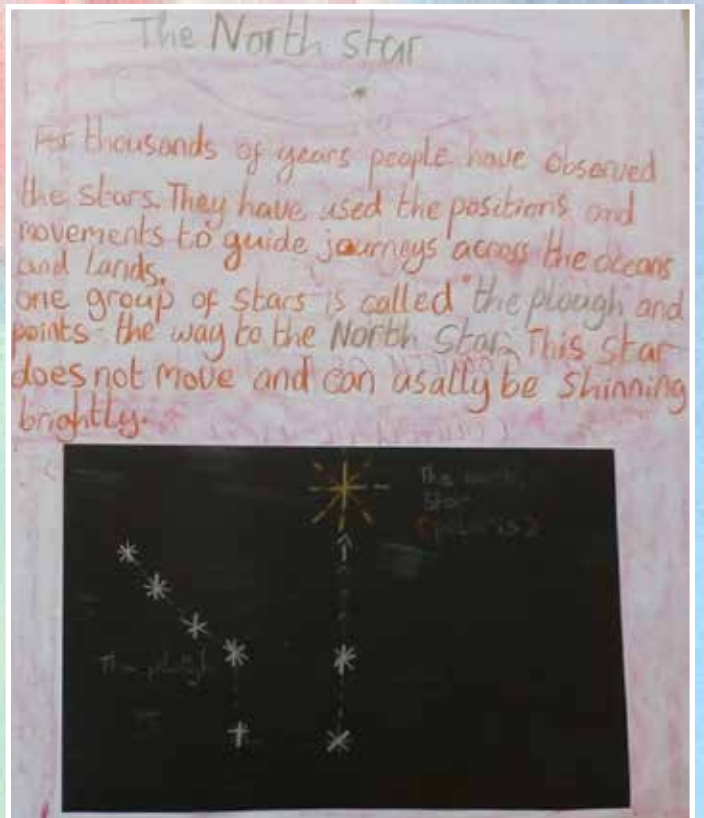 The North star
For thousands of years people have observed
the stars. They have used the positions and
movements to guide journeys across the oceans
and lands.
one group of stars is called the plough and
points the way to the North Star. This star
does not move and can usally be shinning
brightly.
The north
star
(polaris)
The plough